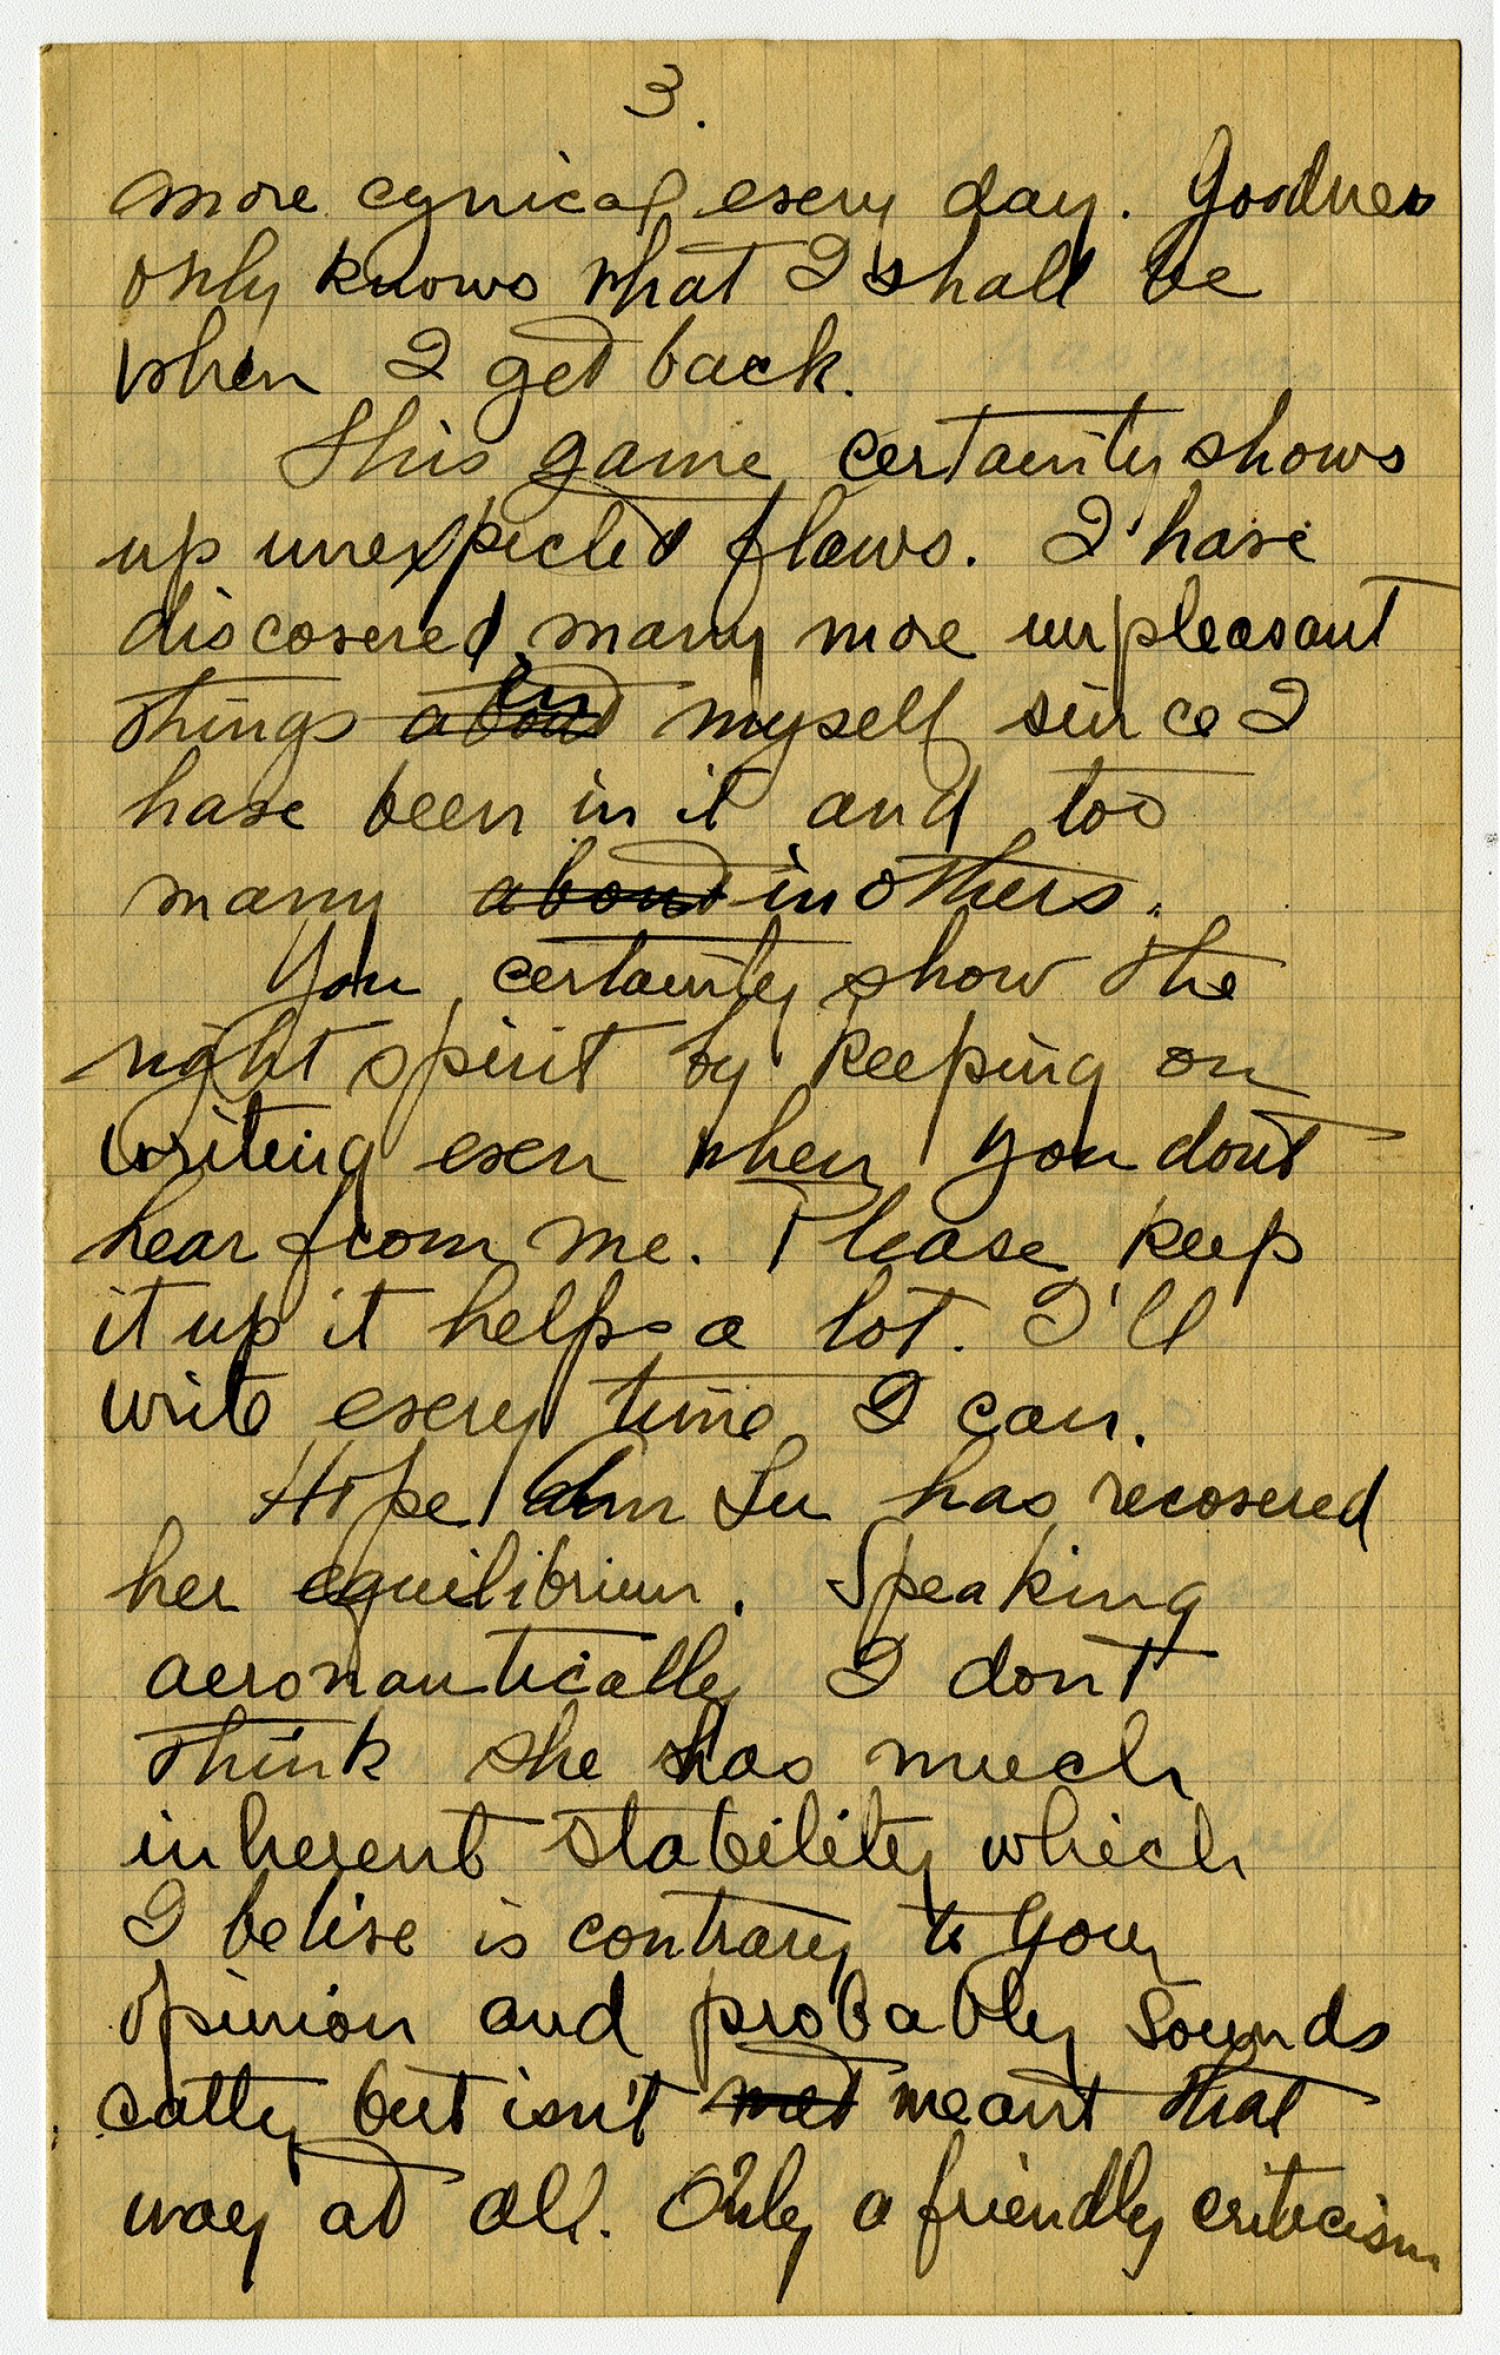 3.
more cynical every day. Goodness
only knows what I shall be
when I get back.
This game certainly shows
up unexpected flaws. I have
discovered many more unpleasant
things about in myself since I
have been in it and too
many about in others.
You certainly show the
right spirit by keeping on
writing even when you dont
hear from me. Please keep
it up it helps a lot. I'll
write every time I can.
Hope Lu has recovered
her equilibrium. Speaking
aeronautically I dont
think she has much
inherent stability which
I belive is contrary to your
opinion and probably sounds
catty but isn't meant that
way at all. Only a friendly criticism